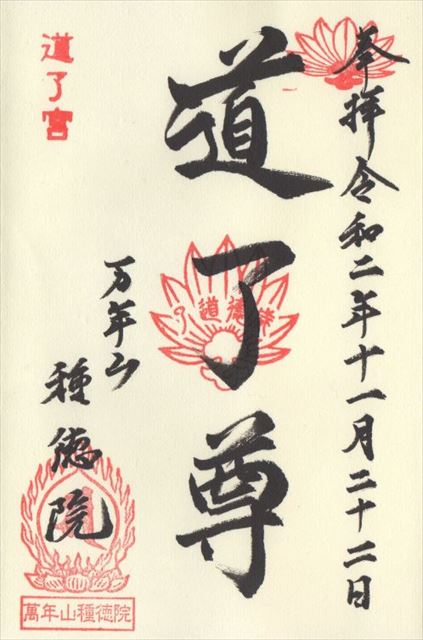 奉拝令和二年十一月二十二日
道了尊
万年山
種徳院
道了宮
萬年山種徳院